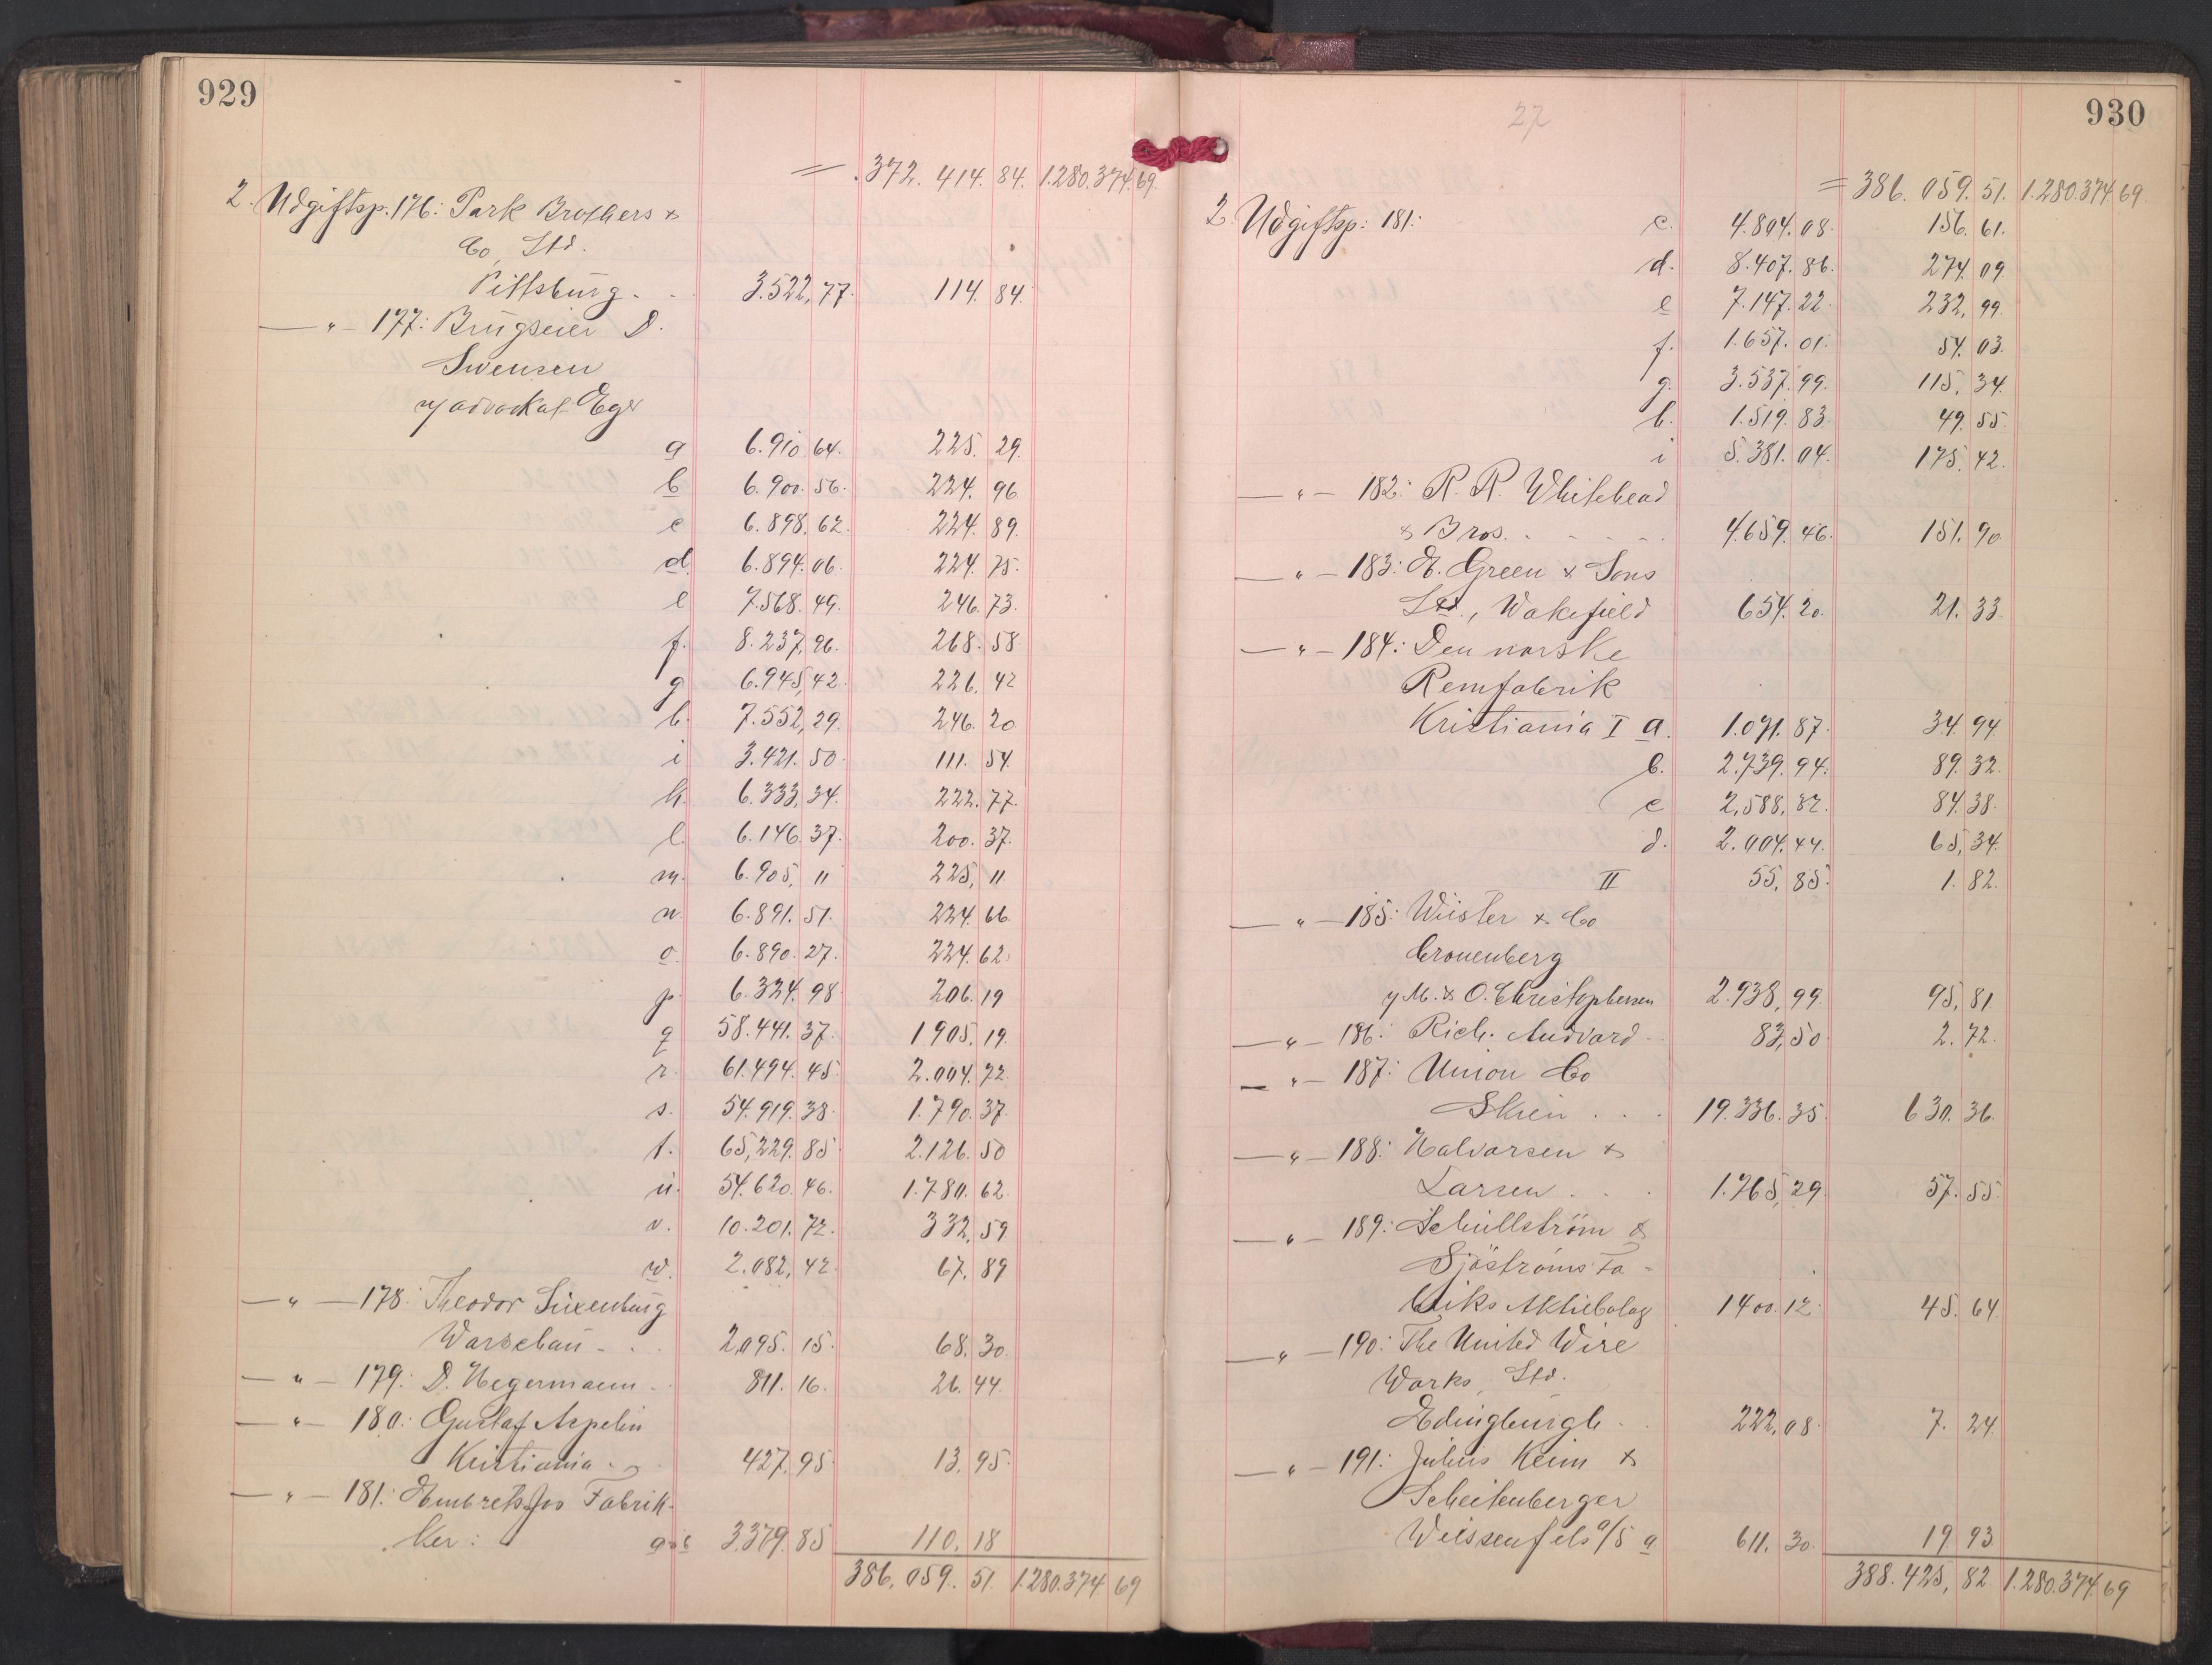 929
= 372. 414. 84. 1.280.374.69.
2. Udgiftsp. 176: Park Brothers &
Co, Ltd.
Pittsburg. . . 3.522,77. 114. 84.
— " — 177: Brugseier D.
Swensen
v/ advokat Eger
a 6.910.64. 225. 29.
b 6.900.56. 224. 96
c 6.898.62. 224. 89.
d. 6.894.06. 224. 75.
e 7.568.49. 246. 73.
f. 8.237,96. 268. 58
g 6.945,42. 226. 42
h. 7.552,29. 246. 20
i 3.421.50. 111. 54.
k. 6.333,34. 222. 77.
l. 6.146.37. 200. 37.
m. 6.905, 11 225, 11.
n. 6.891.51. 224. 66
o. 6.890.27. 224. 62.
p. 6.324.98 206. 19
q 58.441.37. 1905. 19.
r. 61.494.45. 2.004. 72
s. 54.919.38. 1.790. 37.
t. 65,229.85. 2.126. 50
u. 54.620.46. 1.780. 62.
v. 10.201.72. 332, 59.
w. 2.082,42 67. 89
— " — 178: Theodor Luxenburg
Warschau . . . 2,095. 15. 68. 30.
— " — 179: D. Hegermann . 811. 16. 26. 44.
— " — 180: Gustaf Aspelin
Kristiania . . 427,95. 13. 95.
— " — 181: Embretsfos Fabrik-
ker: a & b 3.379.85 110. 18
386, 059. 51. 1.280.374 69
27
930
= 386. 059. 51. 1.280.374 69.
2 Udgiftsp: 181: c. 4.804.08. 156. 61.
d. 8.407.86. 274. 09.
e 7.147.22. 232, 99.
f. 1.657.01. 54. 03.
g. 3.537.99. 115, 34.
h. 1.519.83. 49. 55.
i 5.381.04. 175. 42.
— " — 182: R. R. Whitehead
& Bros. . . . . 4.659.46. 151. 90
— " — 183: E. Green & Sons
Ltd., Wakefield 654.20. 21. 33.
— " — 184: Den norske
Remfabrik
Kristiania I a. 1.071.87. 34. 94.
b. 2.739.94. 89. 32.
c 2,588,82. 84. 38.
d. 2.004.44. 65, 34.
II 55, 85. 1. 82.
— " — 185: Wüster & Co
Cronenberg
v/ M. & O. Christophersen 2.938,99. 95, 81.
— " — 186: Rich. Andvord . 83,50 2. 72.
— " — 187: Union Co
Skien . . . 19.336.35. 630. 36.
— " — 188: Halvorsen &
Larsen . . . 1.765,29 57. 55.
— " — 189: Schullström &
Sjöströms Fa-
briks Aktiebolag 1400.12. 45. 64.
— " — 190: The United Wire
Works, Ltd.
Edingburgh . . 222,08. 7. 24.
— " — 191: Julius Keim &
Scheitenberger
Weissenfels a/S a 611. 30. 19. 93.
388. 425, 82 1.280.374.69